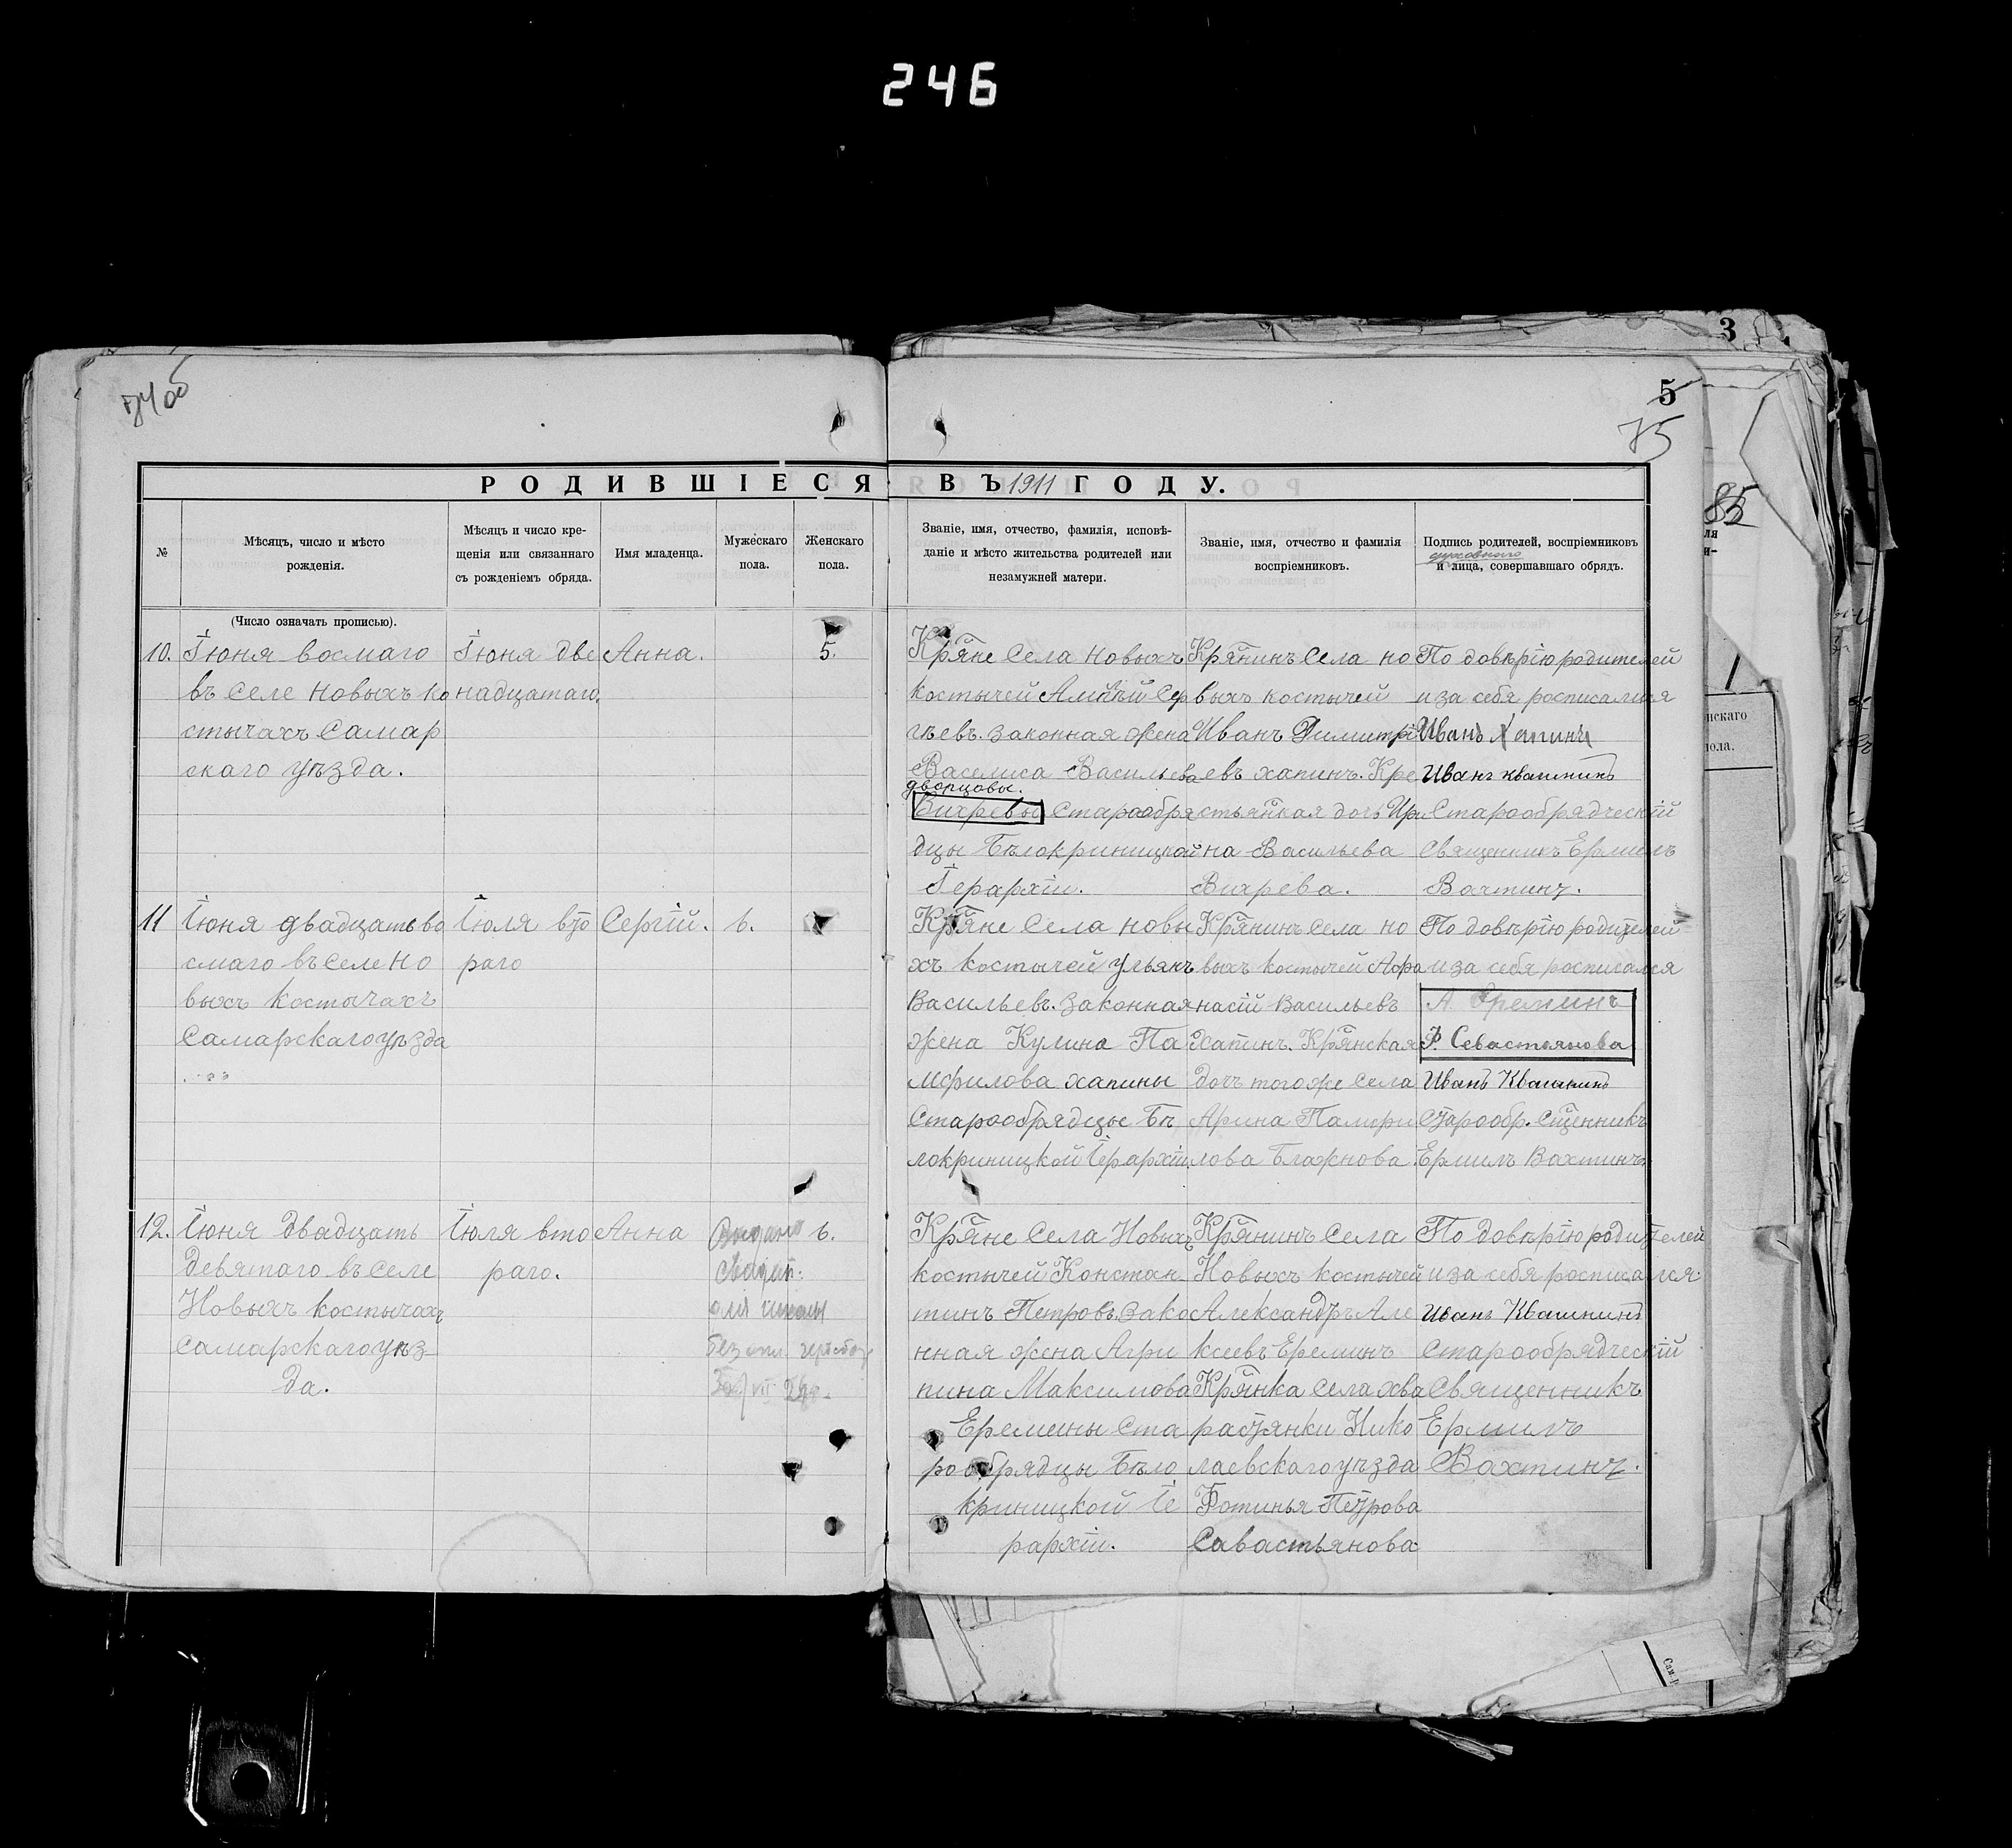 246
3
74 об
5
75
85
РОДИВШІЕСЯ ВЪ 1911 ГОДУ.
№
Мѣсяцъ, число и мѣсто
рожденія.
Мѣсяцъ и число кре-
щенія или связаннаго
съ рожденіемъ обряда.
Имя младенца.
Мужескаго
пола.
Женскаго
пола.
Званіе, имя, отчество, фамилія, исповѣ-
даніе и мѣсто жительства родителей или
незамужней матери.
Званіе, имя, отчество и фамилія
воспріемниковъ.
Подпись родителей, воспріемниковъ
духовнаго
и лица, совершавшаго обрядъ.
(Число означать прописью).
10.
Іюня восмаго
въ селе новыхъ ко
стычахъ Самар
скаго уѣзда.
Іюня две
надцатаго.
Анна.
5.
Кряне села новыхъ
костычей Алиѣй Сер
гѣевъ. законная жена
Василиса Васильева
дворцовы.
Вихревы Старообря
дцы Бѣлокриницкой
Іерархіи.
Крянинъ села но
выхъ костычей
Иванъ Димитрі
евъ хапинъ. Кре
стьянкая дочь Ири
на Васильева
Вихрева.
По довѣрію родителей
и за себя росписался
Иванъ Хапинъ
Иванъ квашнинъ
Старообрядческій
Священникъ Ермилъ
Вахтинъ.
11
Іюня двадцать во
смаго въ селе но
выхъ костычахъ
Самарскаго уѣзда
Іюля вто
раго
Сергій.
6.
Кряне села новы
хъ костычей ульянъ
Васильевъ. законная
жена Кулина Па
мфилова хапины
Старообрядцы Бѣ
локриницкой Іерархіи
Крянинъ села но
выхъ костычей Афо
насій Васильевъ
Хапинъ. Крянская
дочь того же села
Арина Памфи
лова Блажнова.
По довѣрію родителей
и за себя росписался
А. Еремин
Ф. Севастьянова
Иванъ Квашнинъ
Старообр. Сщенникъ
Ермилъ Вахтинъ
12.
Іюня двадцать
девятаго въ селе
Новыхъ костычахъ
Самарскаго уѣз-
да.
Іюля вто
раго.
Анна
Выдано
свидет.
для школы
без
6.
Кряне села Новыхъ
костычей Констан
тинъ Петровъ. Зако
нная жена Агри
пина Максимова
Еремины Ста
рообрядцы Бѣло
криницкой Іе
рархіи.
Крянинъ села
Новыхъ костычей
Александръ Але
ксеевъ Ереминъ
Крянка села хва
растянки Нико
лаевскаго уѣзда
Фотинья Петрова
Савастьянова
По довѣрію родителей
и за себя росписался.
Иванъ Квашнинъ
Старообрядческій
Священникъ
Ермилъ
Вахтинъ.